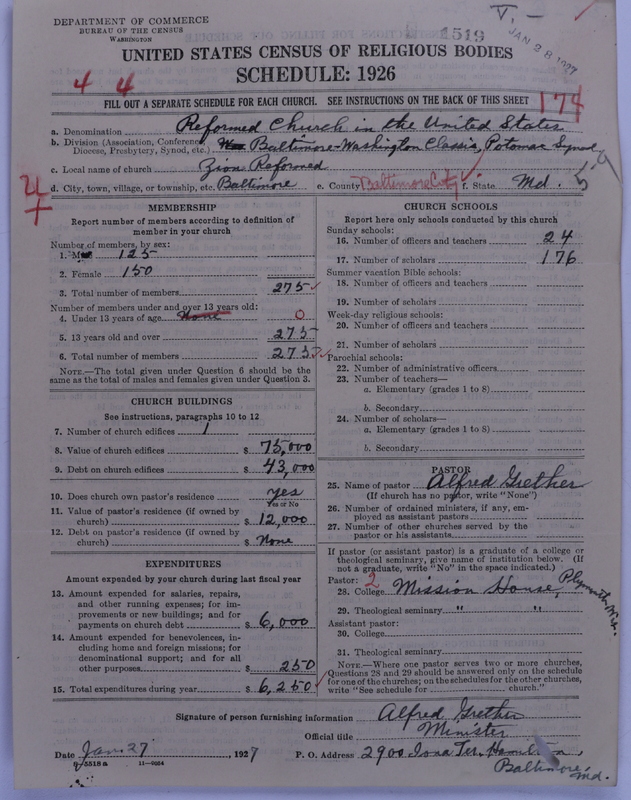 DEPARTMENT OF COMMERCE
BUREAU OF THE CENSUS
WASHINGTON
1519
JAN 28 1927
UNITED STATES CENSUS OF RELIGIOUS BODIES
SCHEDULE: 1926
4 4
FILL OUT A SEPARATE SCHEDULE FOR EACH CHURCH. SEE INSTRUCTIONS ON THE BACK OF THIS SHEET
174
a. Denomination Reformed Church in the United States
b. Division (Association, Conference, Diocese, Presbytery, Synod, etc.) Baltimore-Washington Classis, Potomac Synod
c. Local name of church Zion Reformed
d. City, town, village, or township, etc. Baltimore e. County Baltimore City f. State Md.
MEMBERSHIP
Report number of members according to definition of
member in your church
Number of members, by sex:
1. 125
2. Female 150
3. Total number of members 275
Number of members under and over 13 years old:
4. Under 13 years of age None 0
5. 13 years old and over 275
6. Total number of members 275
NOTE.—The total given under Question 6 should be the
same as the total of males and females given under Question 3.
CHURCH BUILDINGS
See instructions, paragraphs 10 to 12
7. Number of church edifices 1
8. Value of church edifices $ 75,000
9. Debt on church edifices $ 43,000
10. Does church own pastor's residence yes
Yes or No
11. Value of pastor's residence (if owned by
church) $ 12,000
12. Debt on pastor's residence (if owned by
church) $ None
EXPENDITURES
Amount expended by your church during last fiscal year
13. Amount expended for salaries, repairs,
and other running expenses; for im-
provements or new buildings; and for
payments on church debt $ 6,000
14. Amount expended for benevolences, in-
cluding home and foreign missions; for
denominational support; and for all
other purposes $ 250
15. Total expenditures during year $ 6,250
CHURCH SCHOOLS
Report here only schools conducted by this church
Sunday schools:
16. Number of officers and teachers 24
17. Number of scholars 176
Summer vacation Bible schools:
18. Number of officers and teachers
19. Number of scholars
Week-day religious schools:
20. Number of officers and teachers
21. Number of scholars
Parochial schools:
22. Number of administrative officers
23. Number of teachers—
a. Elementary (grades 1 to 8)
b. Secondary
24. Number of scholars—
a. Elementary (grades 1 to 8)
b. Secondary
PASTOR
25. Name of pastor Alfred Grether
(If church has no pastor, write "None")
26. Number of ordained ministers, if any, em-
ployed as assistant pastors
27. Number of other churches served by the
pastor or his assistants
If pastor (or assistant pastor) is a graduate of a college or
theological seminary, give name of institution below. (If
not a graduate, write "No" in the space indicated.)
Pastor: 2
28. College Mission House, Plymouth, Wis.
29. Theological seminary " "
Assistant pastor:
30. College
31. Theological seminary
NOTE.—Where one pastor serves two or more churches,
Questions 28 and 29 should be answered only on the schedule
for one of the churches; on the schedules for the other churches,
write "See schedule for church."
Signature of person furnishing information Alfred Grether
Official title Minister
Date Jan. 27 1927 P. O. Address 2900 Iona Ter. Hamilton,
Baltimore, Md.
11—9054